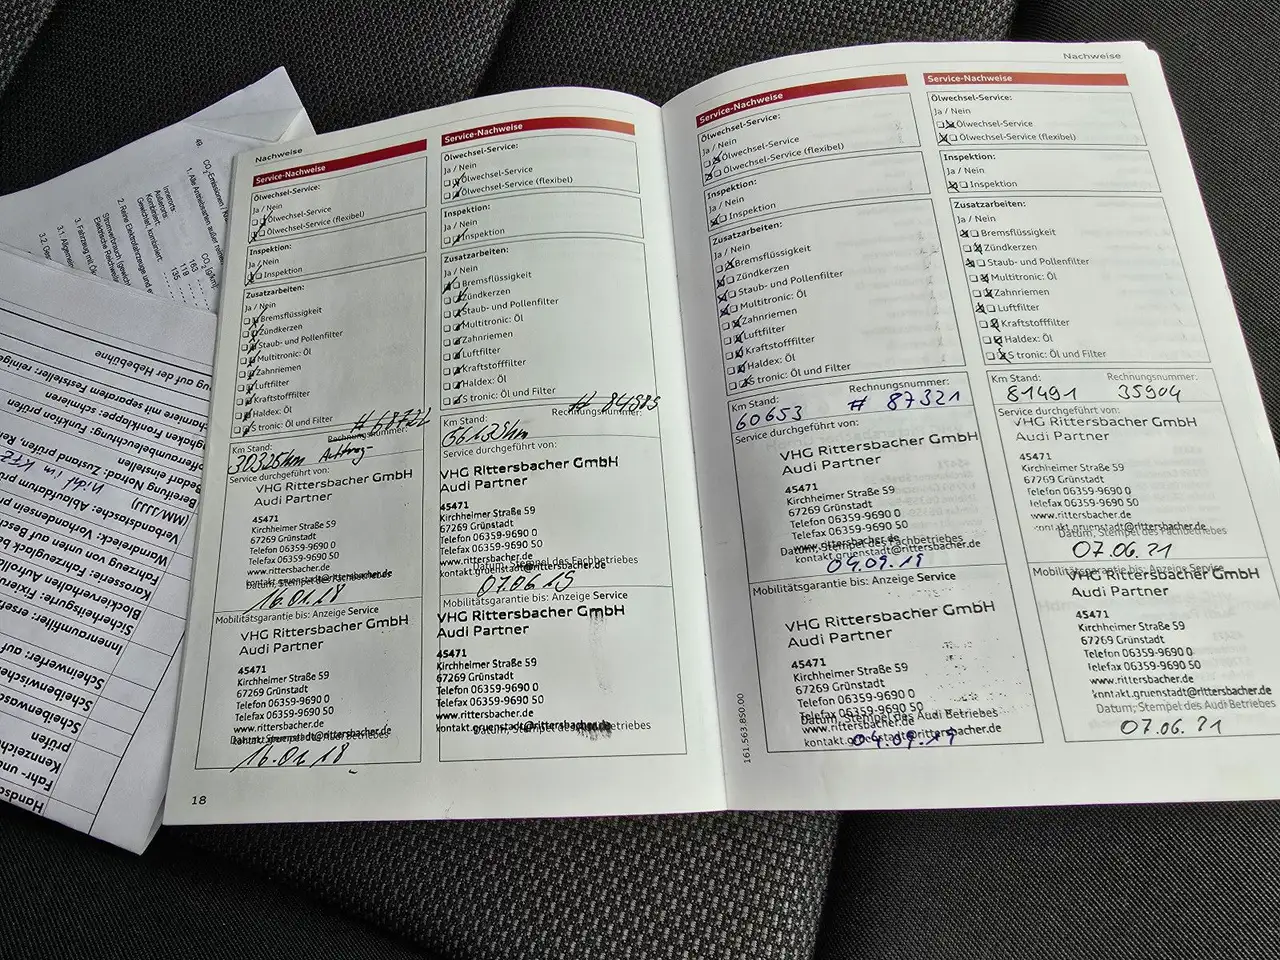 Nachweise
Service-Nachweise
Ölwechsel-Service:
Ja / Nein
Ölwechsel-Service
Ölwechsel-Service (flexibel)
Inspektion:
Ja / Nein
Inspektion
Zusatzarbeiten:
Ja / Nein
Bremsflüssigkeit
Zündkerzen
Staub- und Pollenfilter
Multitronic: Öl
Zahnriemen
Luftfilter
Kraftstofffilter
Haldex: Öl
S tronic: Öl und Filter
# 68722
Km Stand:
Rechnungsnummer:
30325km Auftrag
Service durchgeführt von:
VHG Rittersbacher GmbH
Audi Partner
45471
Kirchheimer Straße 59
67269 Grünstadt
Telefon 06359-9690 0
Telefax 06359-9690 50
www.rittersbacher.de
kontakt.gruenstadt@rittersbacher.de
Datum, Stempel des Fachbetriebes
16.01.18
Mobilitätsgarantie bis: Anzeige Service
VHG Rittersbacher GmbH
Audi Partner
45471
Kirchheimer Straße 59
67269 Grünstadt
Telefon 06359-9690 0
Telefax 06359-9690 50
www.rittersbacher.de
kontakt.gruenstadt@rittersbacher.de
16.01.18
18
Service-Nachweise
Ölwechsel-Service:
Ja / Nein
Ölwechsel-Service
Ölwechsel-Service (flexibel)
Inspektion:
Ja / Nein
Inspektion
Zusatzarbeiten:
Ja / Nein
Bremsflüssigkeit
Zündkerzen
Staub- und Pollenfilter
Multitronic: Öl
Zahnriemen
Luftfilter
Kraftstofffilter
Haldex: Öl
S tronic: Öl und Filter
Km Stand:
Rechnungsnummer:
Service durchgeführt von:
VHG Rittersbacher GmbH
Audi Partner
45471
Kirchheimer Straße 59
67269 Grünstadt
Telefon 06359-9690 0
Telefax 06359-9690 50
www.rittersbacher.de
Datum, Stempel des Fachbetriebes
kontakt.gruenstadt@rittersbacher.de
Mobilitätsgarantie bis: Anzeige Service
VHG Rittersbacher GmbH
Audi Partner
45471
Kirchheimer Straße 59
67269 Grünstadt
Telefon 06359-9690 0
Telefax 06359-9690 50
www.rittersbacher.de
kontakt.gruenstadt@rittersbacher.de
Service-Nachweise
Ölwechsel-Service:
Ja / Nein
Ölwechsel-Service
Ölwechsel-Service (flexibel)
Inspektion:
Ja / Nein
Inspektion
Zusatzarbeiten:
Ja / Nein
Bremsflüssigkeit
Zündkerzen
Staub- und Pollenfilter
Multitronic: Öl
Zahnriemen
Luftfilter
Kraftstofffilter
Haldex: Öl
S tronic: Öl und Filter
Km Stand:
Rechnungsnummer:
60653 # 87321
Service durchgeführt von:
VHG Rittersbacher GmbH
Audi Partner
45471
Kirchheimer Straße 59
67269 Grünstadt
Telefon 06359-9690 0
Telefax 06359-9690 50
www.rittersbacher.de
Datum, Stempel des Fachbetriebes
kontakt.gruenstadt@rittersbacher.de
04.09.19
Mobilitätsgarantie bis: Anzeige Service
VHG Rittersbacher GmbH
Audi Partner
45471
Kirchheimer Straße 59
67269 Grünstadt
Telefon 06359-9690 0
Telefax 06359-9690 50
Datum, Stempel des Audi Betriebes
www.rittersbacher.de
kontakt.gruenstadt@rittersbacher.de
04.09.19
161.563.850.00
Nachweise
Service-Nachweise
Ölwechsel-Service:
Ja / Nein
Ölwechsel-Service
Ölwechsel-Service (flexibel)
Inspektion:
Ja / Nein
Inspektion
Zusatzarbeiten:
Ja / Nein
Bremsflüssigkeit
Zündkerzen
Staub- und Pollenfilter
Multitronic: Öl
Zahnriemen
Luftfilter
Kraftstofffilter
Haldex: Öl
S tronic: Öl und Filter
Km Stand:
Rechnungsnummer:
81491 35904
Service durchgeführt von:
VHG Rittersbacher GmbH
Audi Partner
45471
Kirchheimer Straße 59
67269 Grünstadt
Telefon 06359-9690 0
Telefax 06359-9690 50
www.rittersbacher.de
kontakt.gruenstadt@rittersbacher.de
Datum, Stempel des Fachbetriebes
07.06.21
Mobilitätsgarantie bis: Anzeige Service
VHG Rittersbacher GmbH
Audi Partner
45471
Kirchheimer Straße 59
67269 Grünstadt
Telefon 06359-9690 0
Telefax 06359-9690 50
www.rittersbacher.de
kontakt.gruenstadt@rittersbacher.de
Datum, Stempel des Audi Betriebes
07.06.21